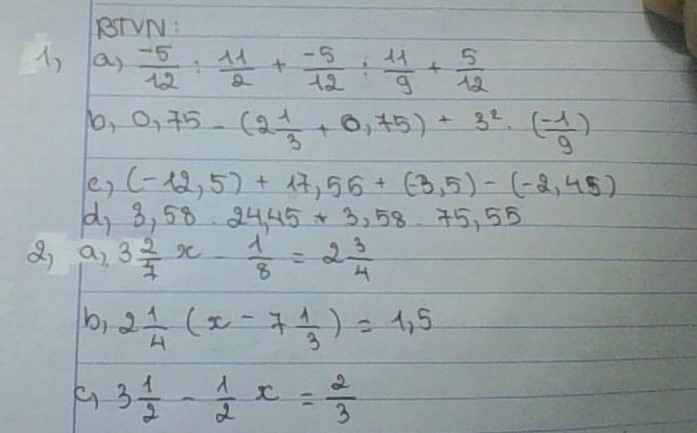 BTVN:
1, a, \frac{-5}{12} : \frac{11}{2} + \frac{-5}{12} : \frac{11}{9} + \frac{5}{12}
b, 0,75 - (2\frac{1}{3} + 0,75) + 3². (\frac{-1}{9})
c, (-12,5) + 17,55 + (-3,5) - (-2,45)
d, 3,58 . 24,45 + 3,58 . 75,55
2, a, 3\frac{2}{7} x - \frac{1}{8} = 2\frac{3}{4}
b, 2\frac{1}{4} (x - 7\frac{1}{3}) = 1,5
c, 3\frac{1}{2} - \frac{1}{2} x = \frac{2}{3}